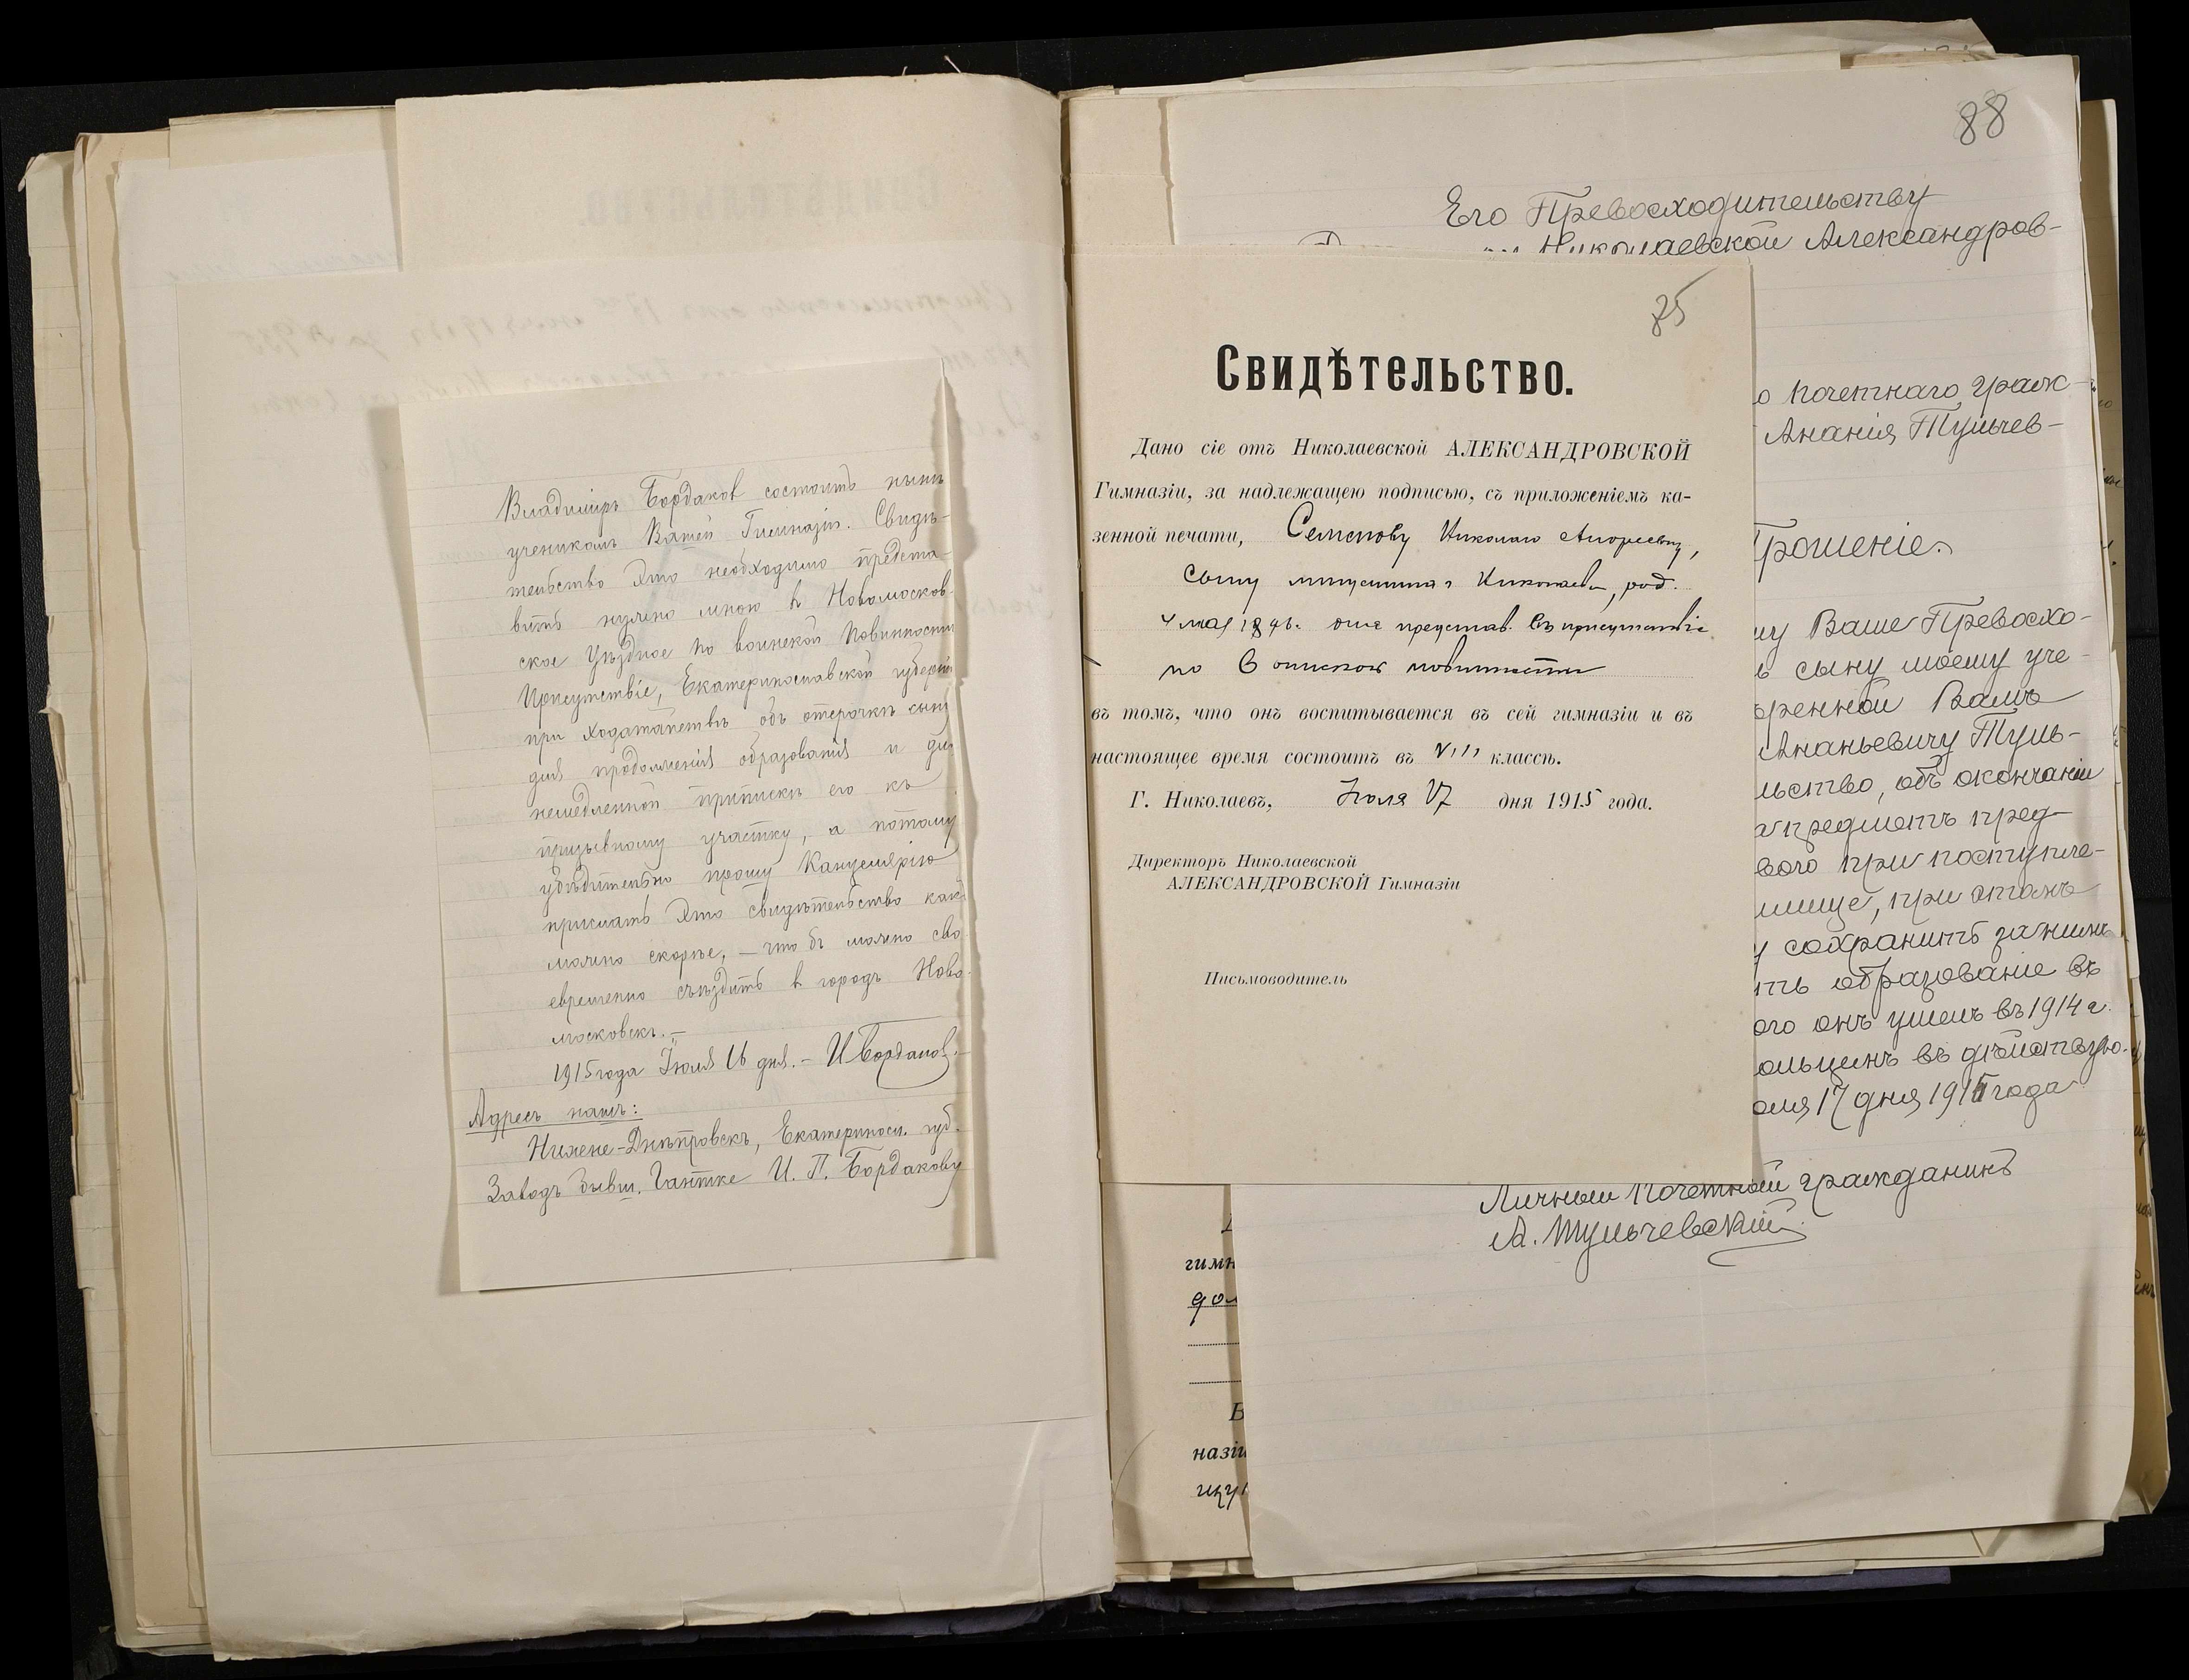 Владиміръ Бордаков состоитъ нынѣ
ученикомъ Вашей Гимназіи. Свидѣ-
тельство это необходимо предста-
вить нужно мною в Новомосков-
ское Уѣздное по воинской Повинности
Присутствіе, Екатеринославской губерніи
при ходатайствѣ объ отсрочкѣ сыну
для продолженія образованія и для
немедленной приписки его къ
призывному участку, а потому
убѣдительно прошу Канцелярію
прислать это свидѣтельство какъ
можно скорѣе, – что бъ можно сво-
евременно съѣздить в городъ Ново-
московскъ. –
1915 года Іюля 16 дня. – И Бордаков.
Адресъ нашъ:
Нижне-Днѣпровскъ, Екатеринос. губ.
Заводъ бывш. Гантке И. П. Бордакову
85
Свидѣтельство.
Дано сіе отъ Николаевской АЛЕКСАНДРОВСКОЙ
Гимназіи, за надлежащею подписью, съ приложеніемъ ка-
зенной печати, Семенову Николаю
сыну г. Николаева, род.
4 мая 1896. для представ. въ присутствіе
по воинской повинности
въ томъ, что онъ воспитывается въ сей гимназіи и въ
настоящее время состоитъ въ VIII классѣ.
Г. Николаевъ, Іюля 17 дня 1915 года.
Директоръ Николаевской
АЛЕКСАНДРОВСКОЙ Гимназіи
Письмоводитель
88
Его Превосходительству
Николаевской Александров-
о почетнаго граж-
Ананія Тульчев-
Прошеніе.
му Ваше Превосхо-
ь сыну моему уче-
ренной Вамъ
Ананьевичу Туль-
льство, объ окончаніи
предметъ пред-
вого при поступле-
лище, при
у сохранить за нимъ
ть образованіе въ
ого онъ ушелъ въ 1914 г.
ольцемъ въ действую-
юля 17 дня 1915 года
Личный почетный гражданинъ
А. Тульчевскій
гимн
дол
В
назіи